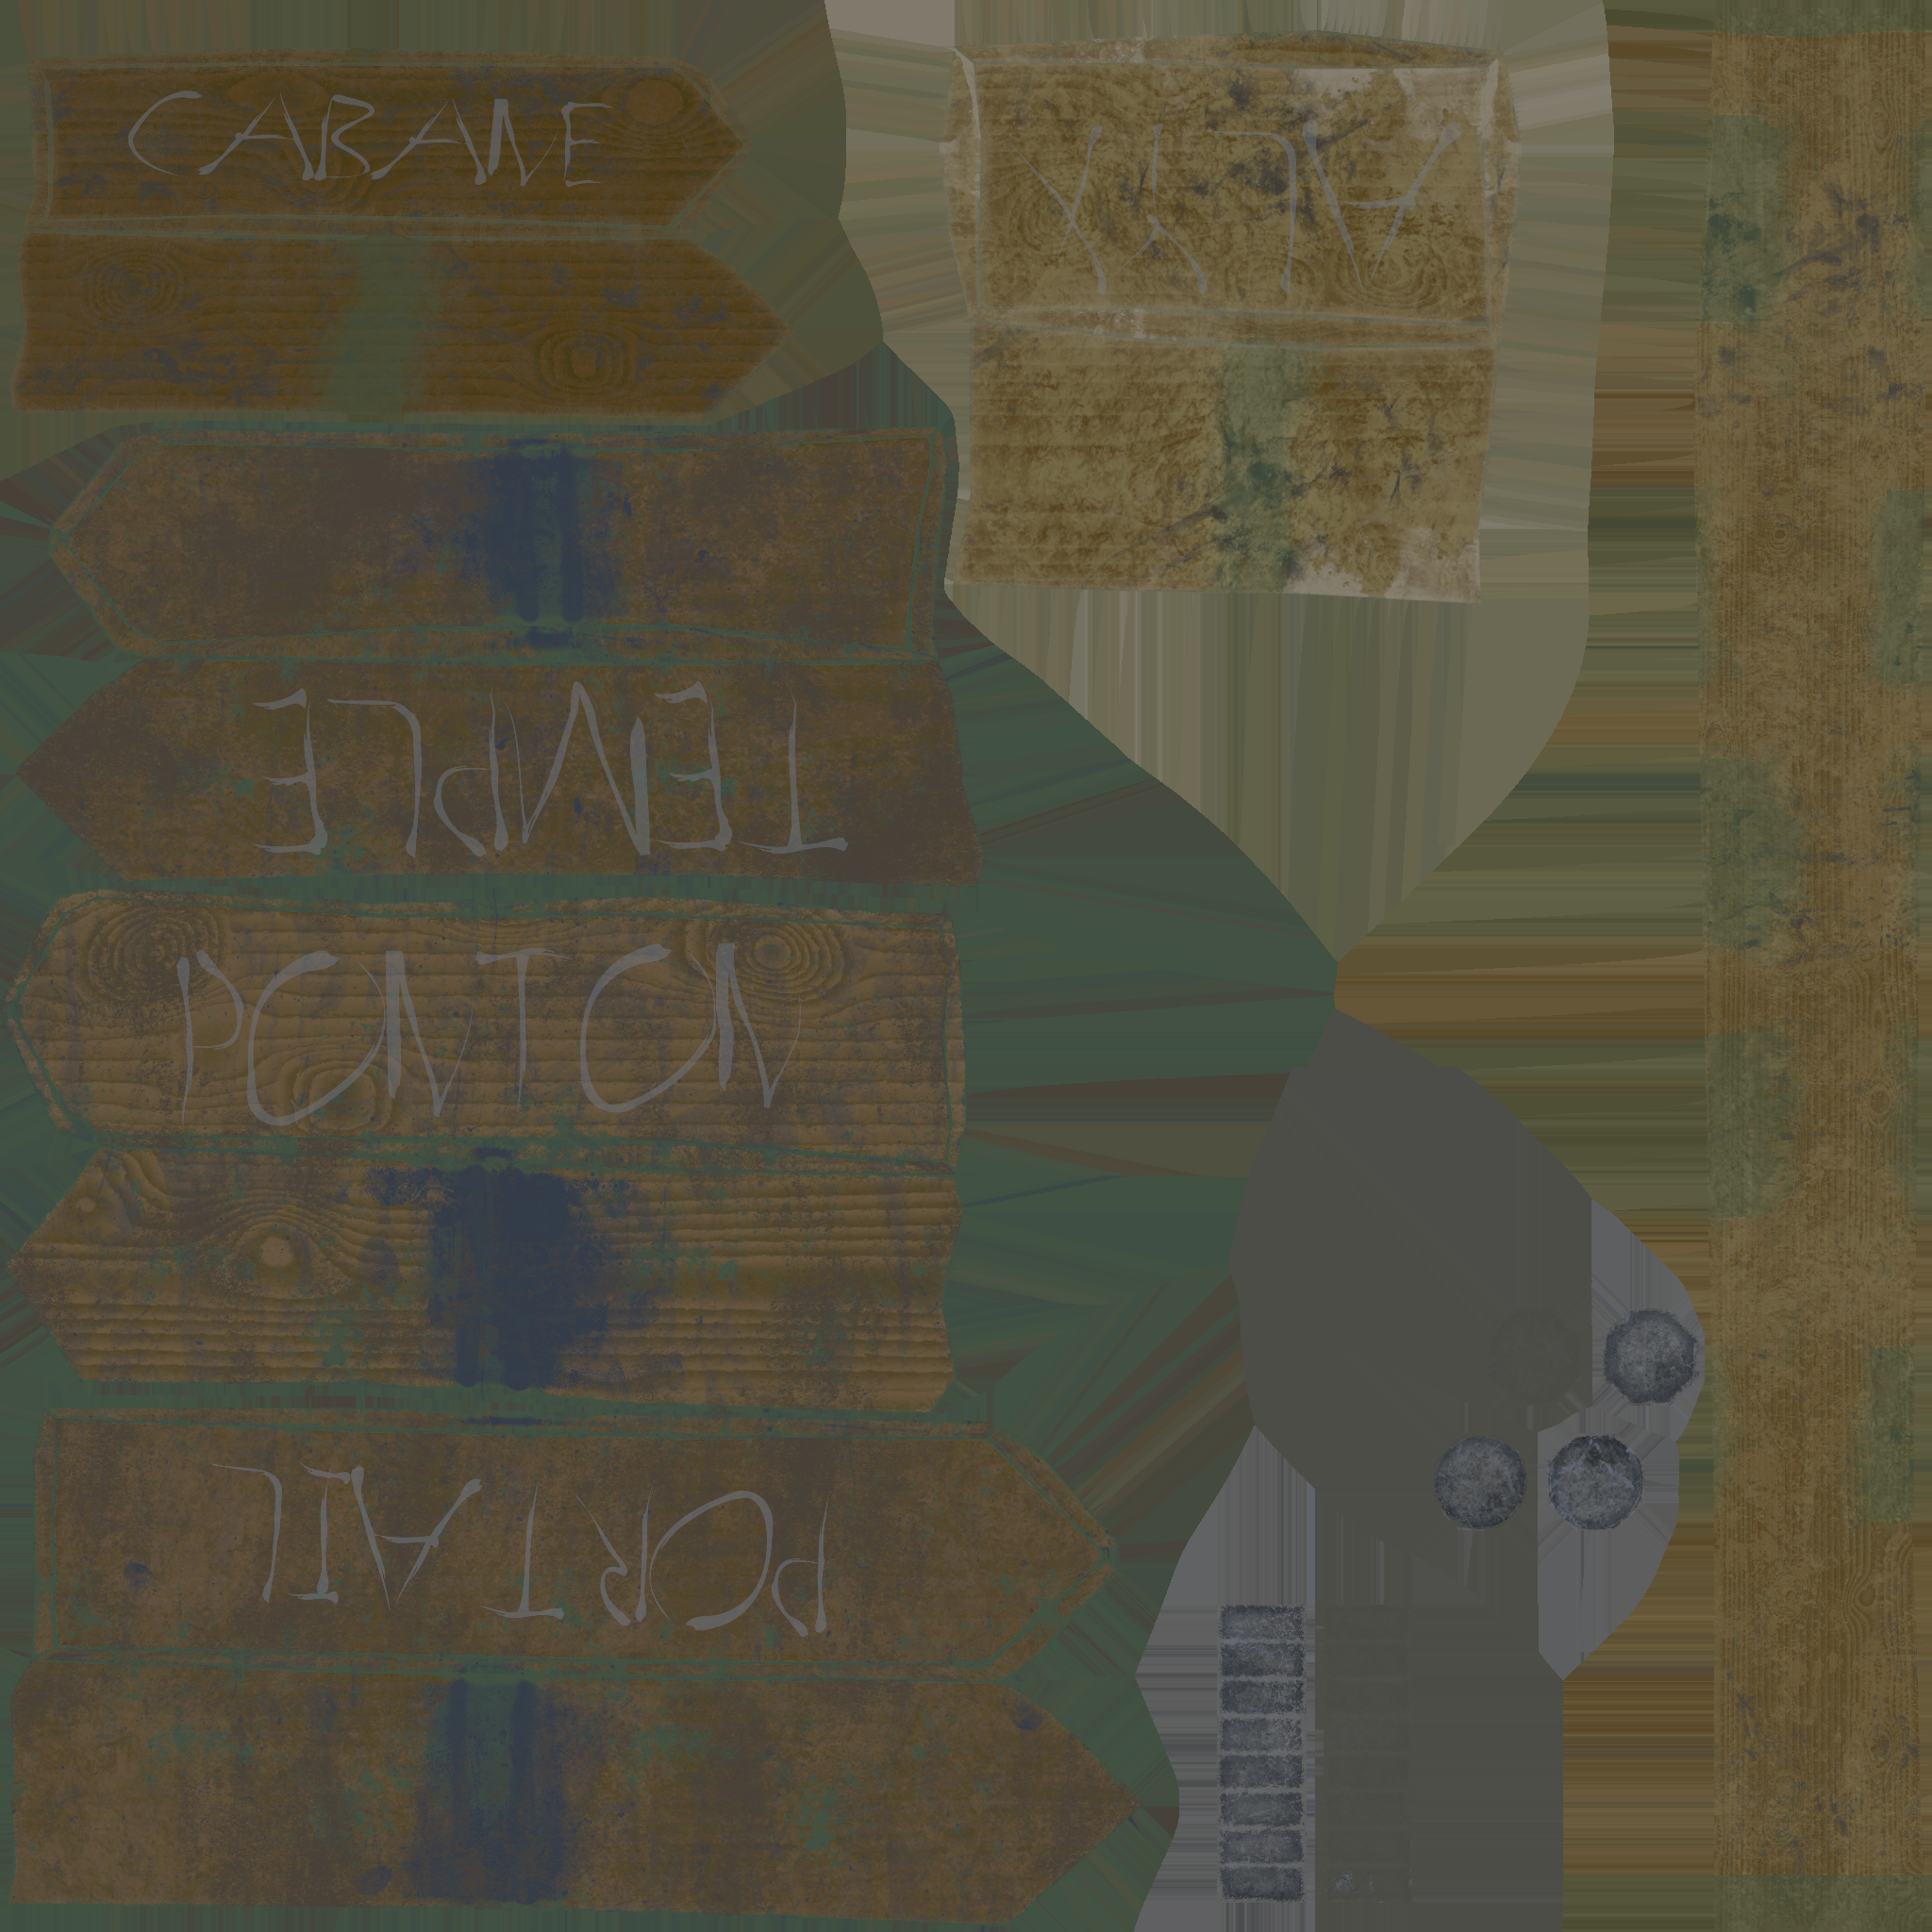 CABANE
ALYX
TEMPLE
PONTON
PORTAIL